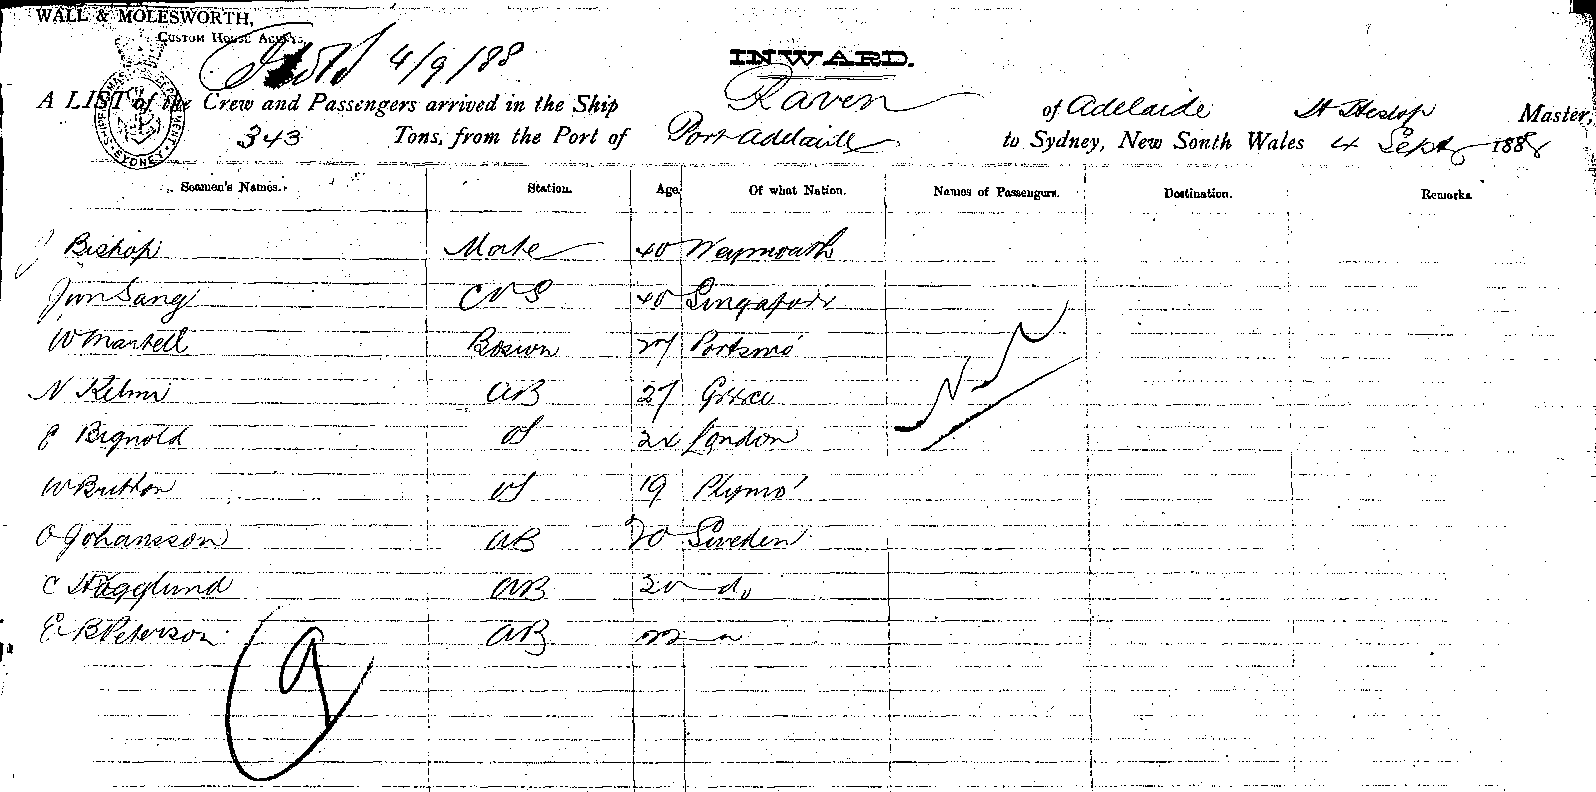 WALL & MOLESWORTH,
CUSTOM HOUSE AGENTS,
4/9/88
INWARD.
A LIST of the Crew and Passengers arrived in the Ship Raven of Adelaide Master,
343 Tons, from the Port of Port Adelaide to Sydney, New South Wales 4 Sept 1888
Seamen's Names. Station. Age Of what Nation. Names of Passengers. Destination. Remarks
J Bishop Mate 40 Weymouth
Jim Sang C & S 40 Singapore
W Martell Boswn 27 Portsmo
N AB 27 Greece
E Bignold OS London
W Britton OS 19 Plymo'
O Johansson AB 20 Sweden
C Hagglund AB 20 do
E B Peterson AB
9